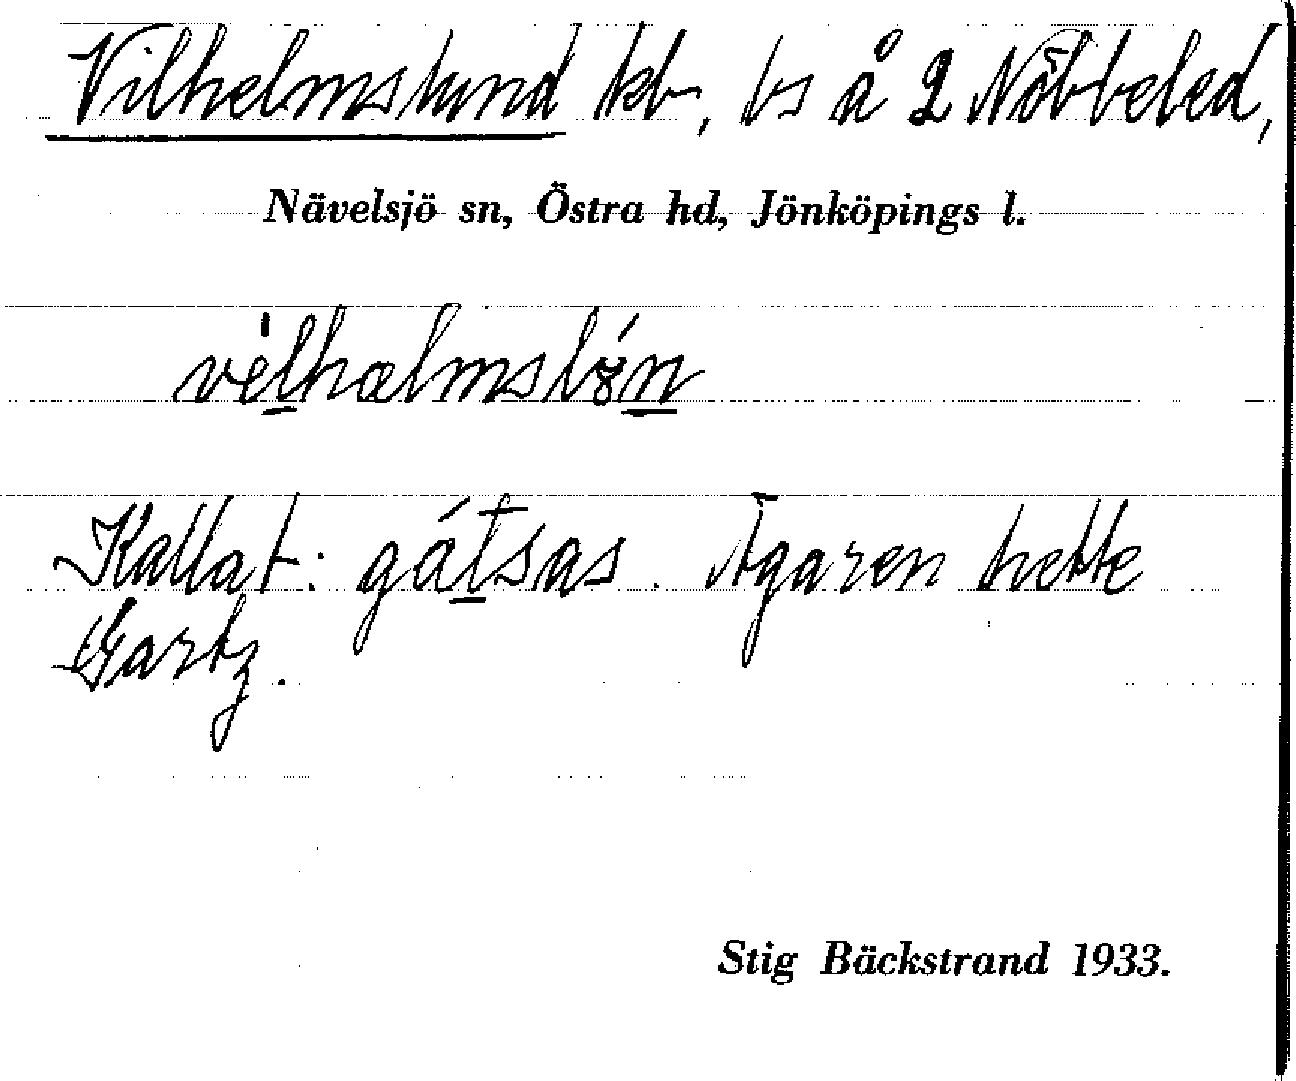 Vilhelmslund kb, bs å 2 Nöbbeled,
Nävelsjö sn, Östra hd, Jönköpings l.
vèlhælmslón
Kallat: gátsas. Ägaren hette
Gartz.
Stig Bäckstrand 1933.